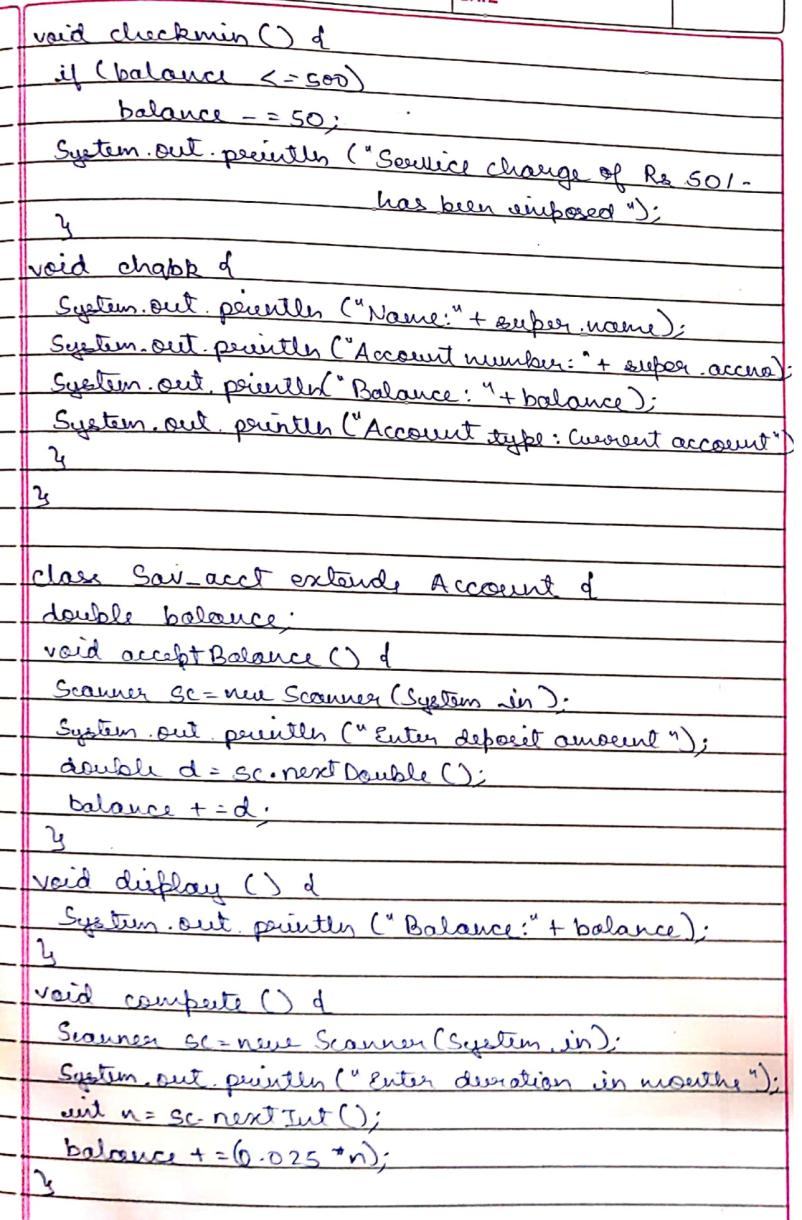 void checkmin () {
if (balance <= 500)
balance -= 50;
System.out.println ("Service charge of Rs 50/-
has been imposed");
}
void chqbk {
System.out.println ("Name:" + super.name);
System.out.println ("Account number:" + super.accno);
System.out.println ("Balance: "+balance);
System.out.println ("Account type: Current account")
}
}
class Sav_acct extends Account {
double balance;
void acceptBalance () {
Scanner sc = new Scanner (System.in);
System.out.println ("Enter deposit amount");
double d = sc.nextDouble ();
balance += d;
}
void display () {
System.out.println ("Balance:" + balance);
}
void compute () {
Scanner sc = new Scanner (System.in);
System.out.println ("Enter duration in months");
int n = sc.nextInt ();
balance += (0.025 *n);
}